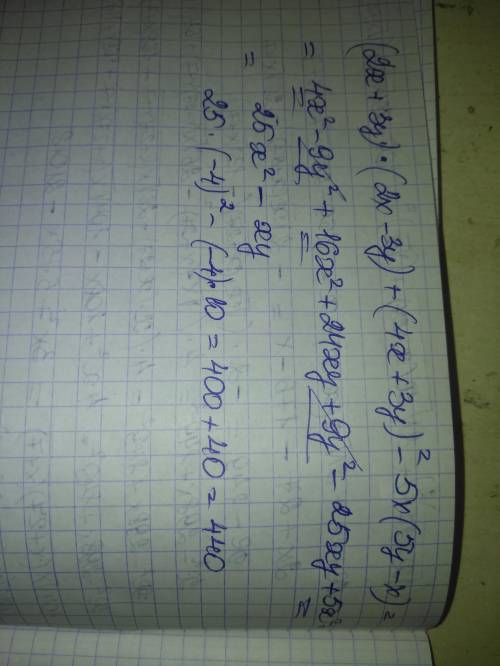 (2x+3y)·(2x-3y)+(4x+3y)²-5x(5y-x)=
=4x²-9y²+16x²+24xy+9y²-25xy+5x²=
=25x²-xy
25·(-4)²-(-4)·10=400+40=440